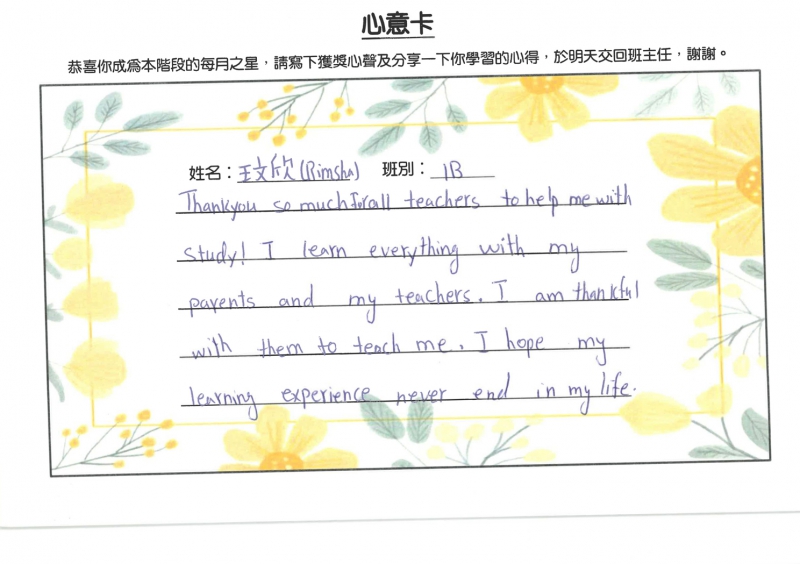 心意卡
恭喜你成為本階段的每月之星，請寫下獲獎心聲及分享一下你學習的心得，於明天交回班主任，謝謝。
姓名：玟欣(Rimsha) 班別：1B
Thankyou so much for all teachers to help me with
study! I learn everything with my
parents and my teachers. I am thankful
with them to teach me. I hope my
learning experience never end in my life.